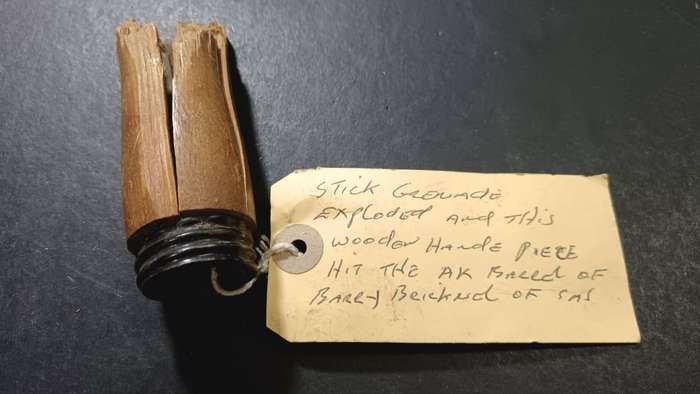 STICK GRENADE
EXPLODED AND THIS
WOODEN HANDE PIECE
HIT THE AK BARREL OF
BARRY OF SAS